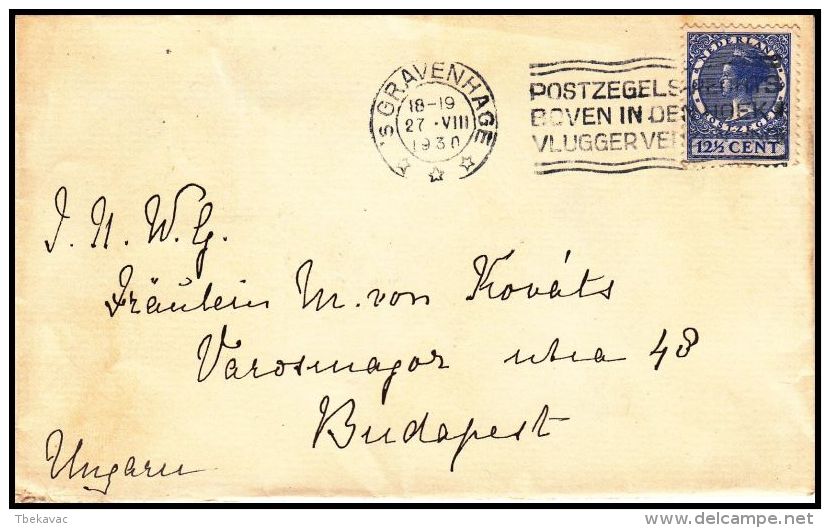 'S GRAVENHAGE
18-19
27 · VIII
1930
POSTZEGELS
BOVEN IN DE
VLUGGER
NEDERLAND
POSTZEGEL
12½ CENT
J. H. W. G.
Fräulein M. von Kováts
Varosmajor utca 48
Budapest
Ungarn
Tbekavac
delcampe.net